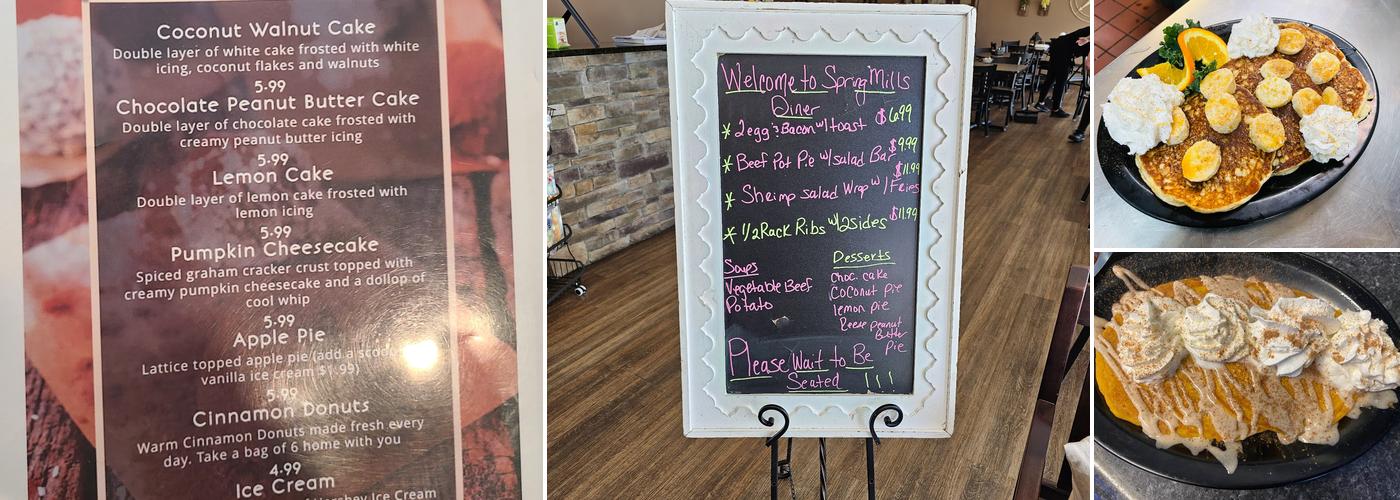 Coconut Walnut Cake
Double layer of white cake frosted with white
icing, coconut flakes and walnuts
5.99
Chocolate Peanut Butter Cake
Double layer of chocolate cake frosted with
creamy peanut butter icing
5.99
Lemon Cake
Double layer of lemon cake frosted with
lemon icing
5.99
Pumpkin Cheesecake
Spiced graham cracker crust topped with
creamy pumpkin cheesecake and a dollop of
cool whip
5.99
Apple Pie
Lattice topped apple pie (add a scoop
vanilla ice cream $1.99)
5.99
Cinnamon Donuts
Warm Cinnamon Donuts made fresh every
day. Take a bag of 6 home with you
4.99
Ice Cream
Hershey Ice Cream
Welcome to Spring Mills
Diner
* 2 egg & Bacon w/ toast $6.99
* Beef Pot Pie w/ salad Bar $9.99
* Shrimp salad Wrap w/ Fries $11.99
* 1/2 Rack Ribs w/ 2 sides $11.99
Soups
Vegetable Beef
Potato
Desserts
Choc. cake
Coconut Pie
lemon Pie
Reese Peanut
Butter
Pie
Please Wait to Be
Seated !!!